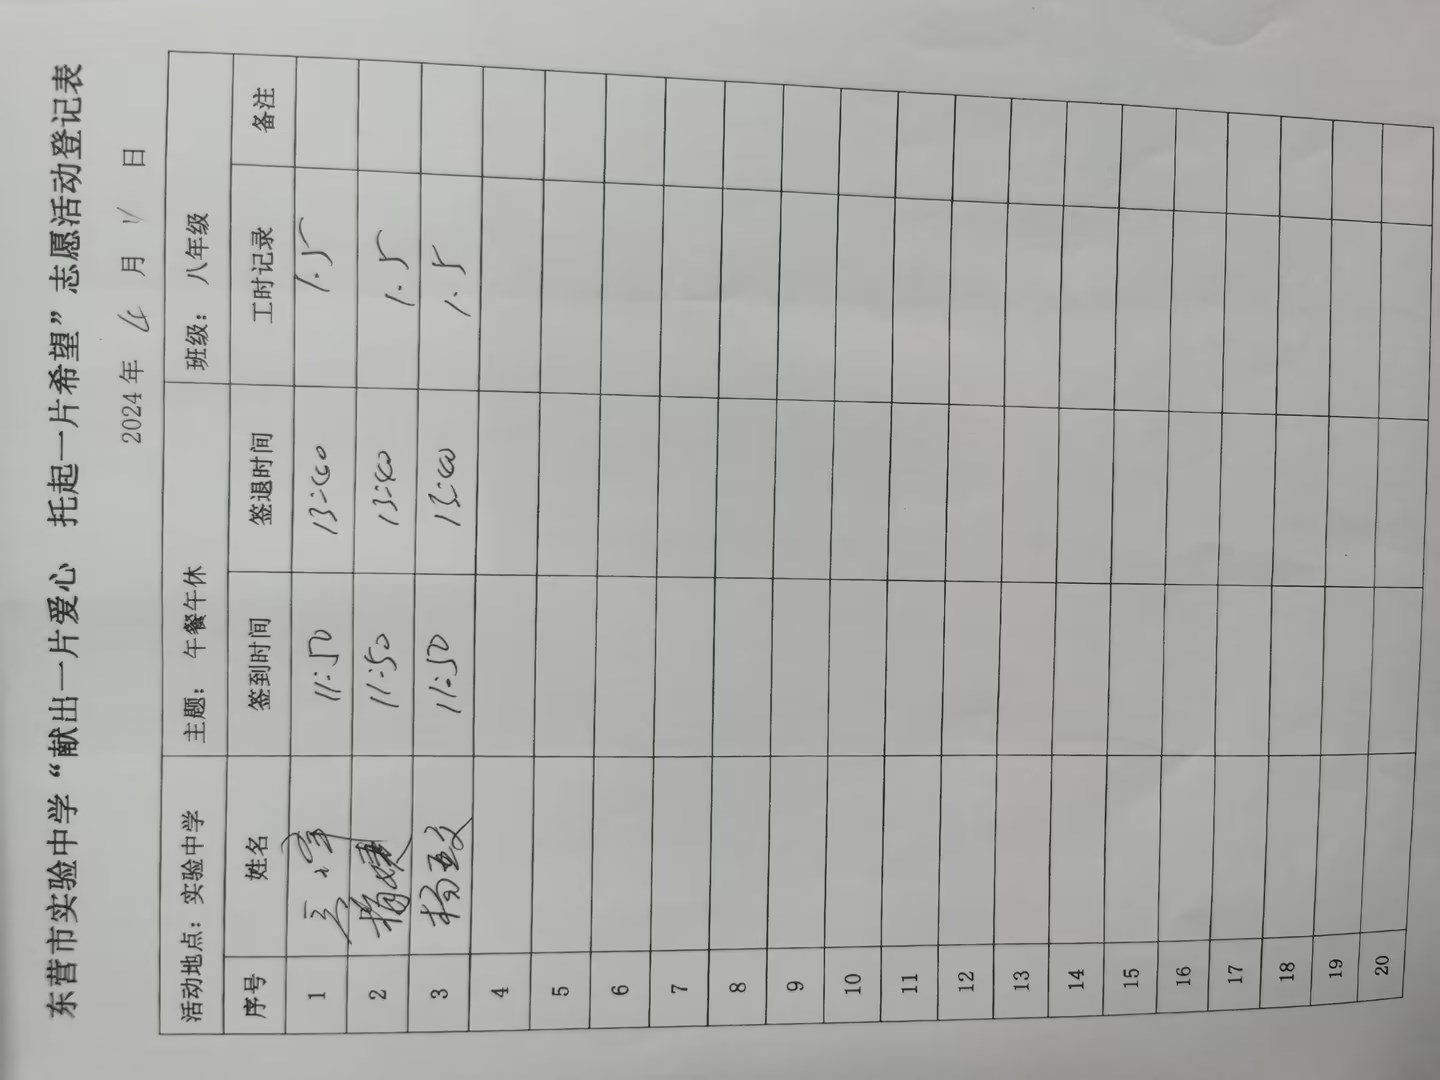 东营市实验中学“献出一片爱心 托起一片希望”志愿活动登记表
2024年 4 月 日
活动地点：实验中学 主题：午餐午休 班级：八年级
序号 姓名 签到时间 签退时间 工时记录 备注
1 11:50 13:40 1.5
2 11:50 13:40 1.5
3 11:50 13:40 1.5
4
5
6
7
8
9
10
11
12
13
14
15
16
17
18
19
20